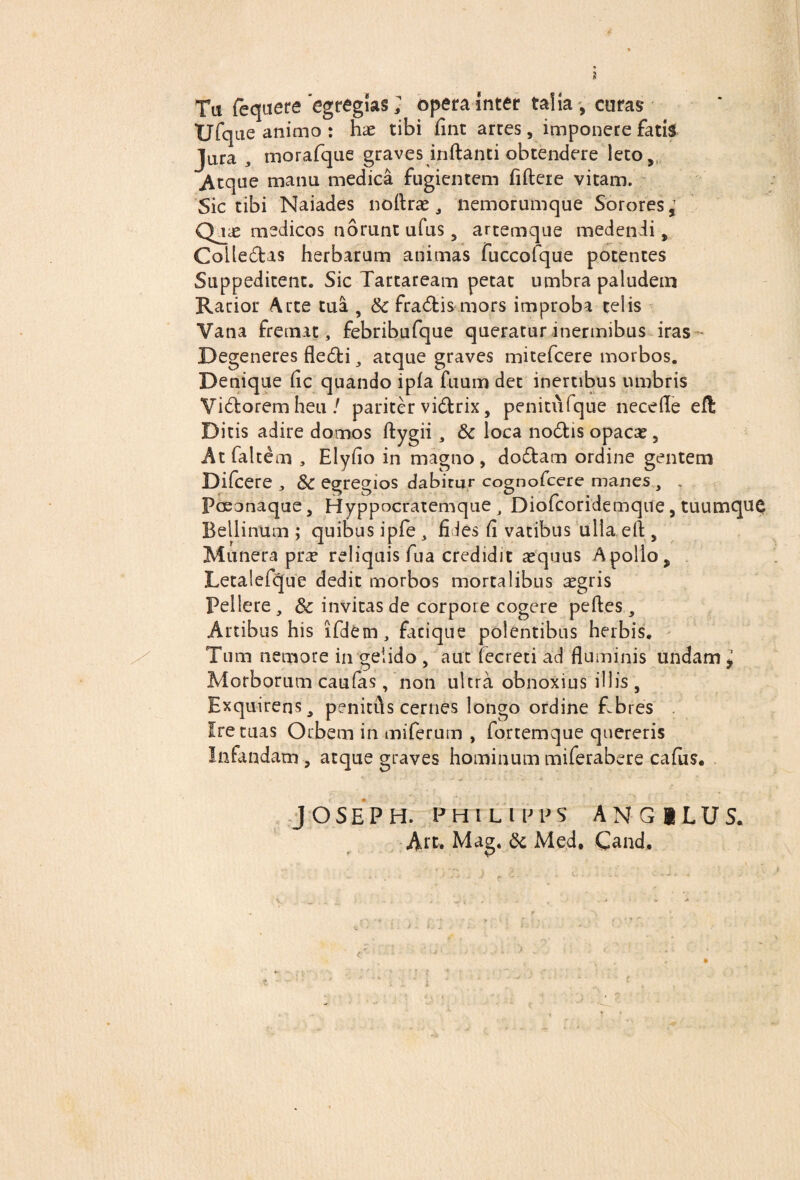 Tu ſequere egregias, opera inter talia, curas
Uſque animo : hæ tibi ſint artes, imponere fatis
Jura, moraſque graves inſtanti obtendere leto,
Atque manu medicâ fugientem ſiſtere vitam.
Sic tibi Naiades noſtræ, nemorumque Sorores,
Quæ medicos nôrunt uſus, artemque medendi,
Collectas herbarum animas ſuccoſque potentes
Suppeditent. Sic Tartaream petat umbra paludem
Rarior Arte tuâ, & fractis mors improba telis
Vana fremat, febribuſque queratur inermibus iras
Degeneres flecti, atque graves miteſcere morbos.
Denique ſic quando ipſa ſuum det inertibus umbris
Victorem heu ! paritèr victrix, penitùſque neceſſe eſt
Ditis adire domos ſtygii, & loca noctis opacæ,
At ſaltèm, Elyſio in magno, doctam ordine gentem
Diſcere, & egregios dabitur cognoſcere manes,
Pœonaque, Hyppocratemque, Dioſcoridemque, tuumque
Bellinum ; quibus ipſe, fides ſi vatibus ulla eſt,
Munera præ reliquis ſua credidit æquus Apollo,
Letaleſque dedit morbos mortalibus ægris
Pellere, & invitas de corpore cogere peſtes,
Artibus his iſdèm, fatique polentibus herbis.
Tum nemore in gelido, aut ſecreti ad fluminis undam,
Morborum cauſas, non ultrà obnoxius illis,
Exquirens, penitùs cernes longo ordine febres
Ire tuas Orbem in miſerum, ſortemque quereris
Infandam, atque graves hominum miſerabere caſus.
JOSEPH. PHILIPPS ANGILUS.
Art. Mag. & Med. Cand.